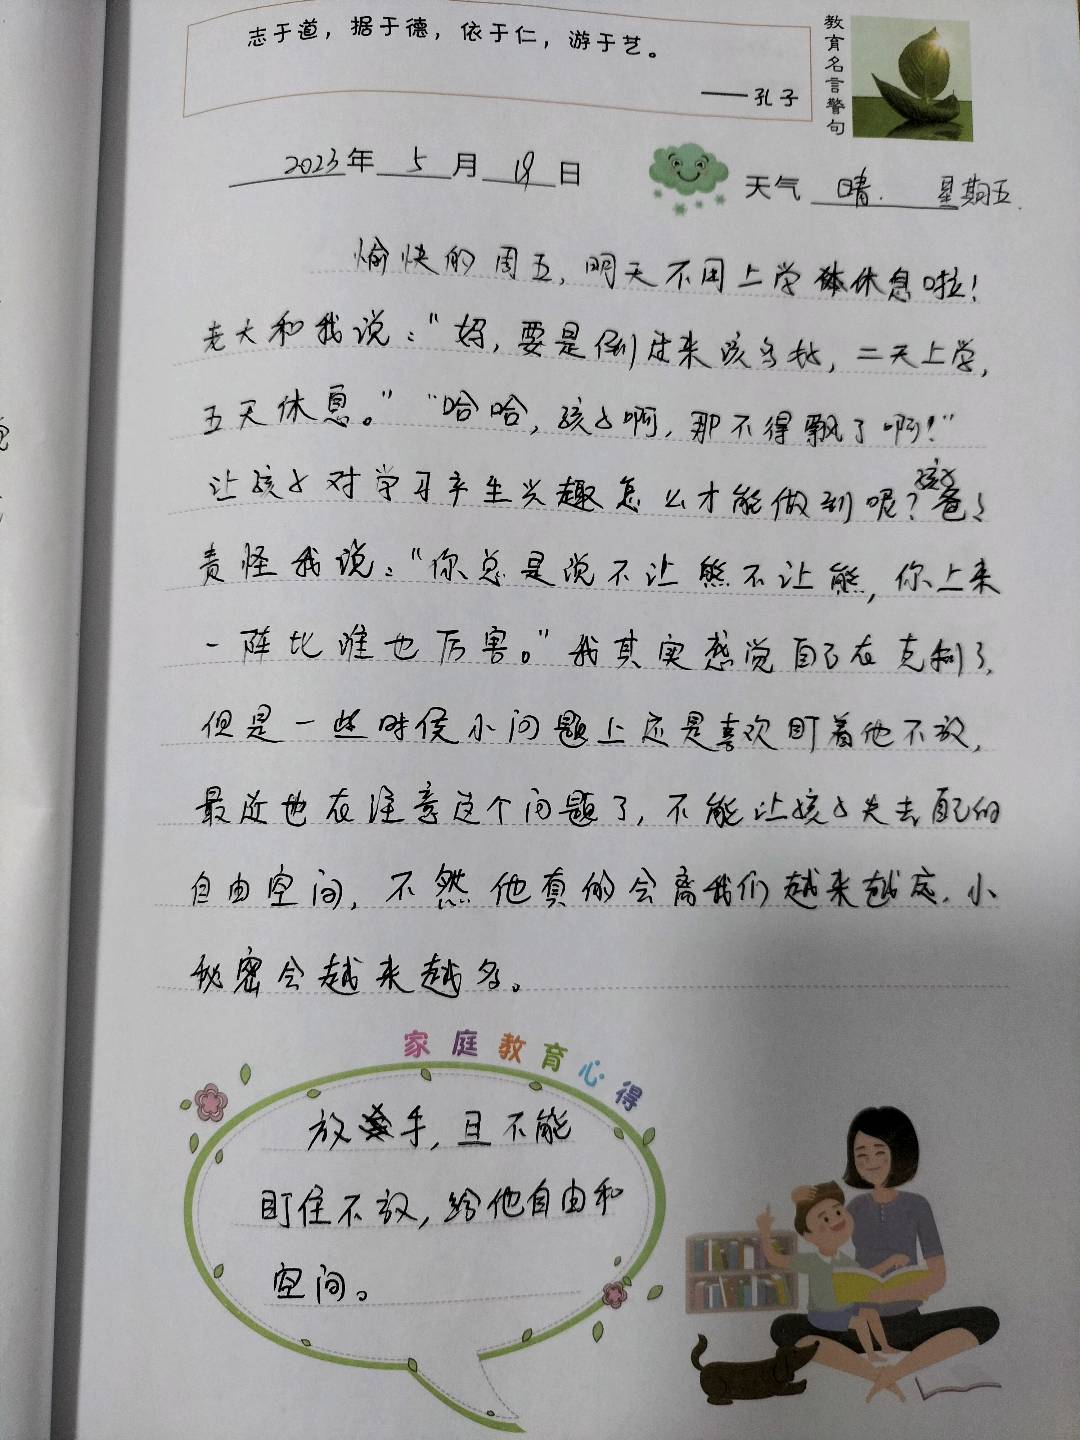 志于道，据于德，依于仁，游于艺。
——孔子
教育名言警句
2023年 5 月 19 日 天气 晴. 星期五.
愉快的周五，明天不用上学休息啦！
老大和我说："妈，要是倒过来该多好，二天上学，
五天休息。""哈哈，孩子啊，那不得飘了啊！"
让孩子对学习产生兴趣怎么才能做到呢？孩子爸爸
责怪我说："你总是说不让熊不让熊，你上来
一阵比谁也厉害。"我其实感觉自己在克制了，
但是一些时侯小问题上还是喜欢盯着他不放，
最近也在注意这个问题了，不能让孩子失去自己的
自由空间，不然他真的会离我们越来越远，小
秘密会越来越多。
家庭教育心得
放手，且不能
盯住不放，给他自由和
空间。